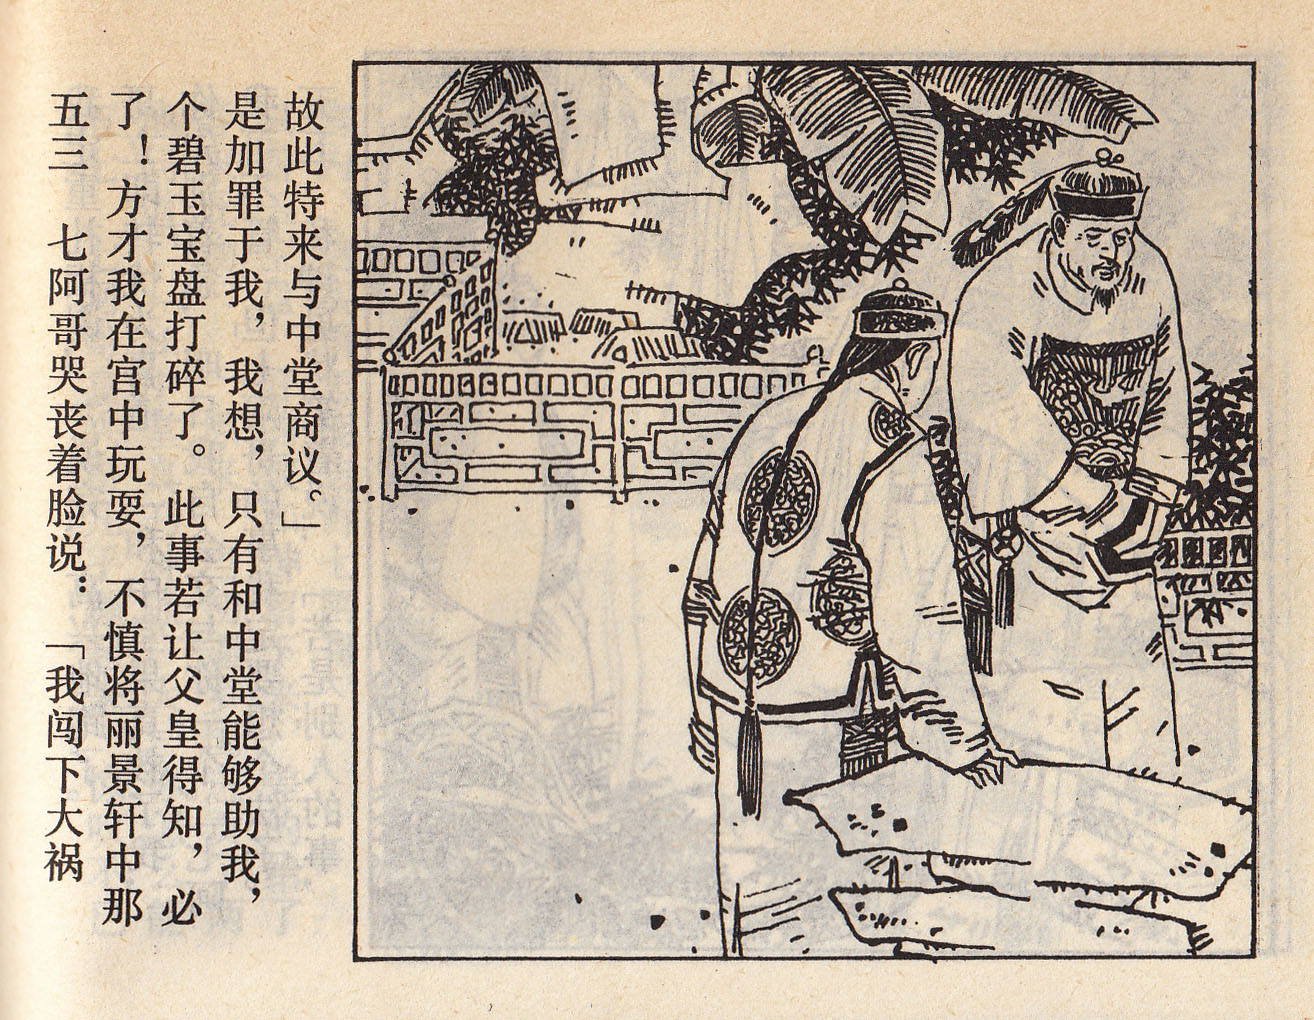 五三　七阿哥哭丧着脸说：「我闯下大祸
了！方才我在宫中玩耍，不慎将丽景轩中那
个碧玉宝盘打碎了。此事若让父皇得知，必
是加罪于我，我想，只有和中堂能够助我，
故此特来与中堂商议。」